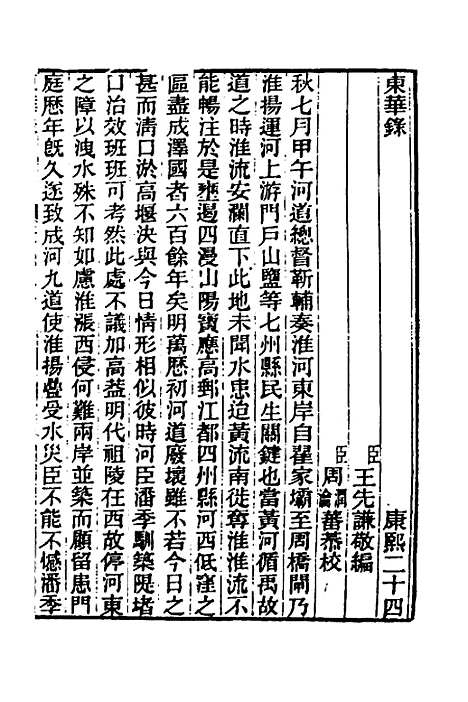 東華錄　康熙二十四
臣王先謙敬編
臣周潤蕃周瀹蕃恭校
秋七月甲午河道總督靳輔奏淮河東岸自翟家壩至周橋閘乃
淮揚運河上游門戶山鹽等七州縣民生關鍵也當黃河循禹故
道之時淮流安瀾直下此地未聞水患迨黃流南徙奪淮淮流不
能暢注於是壅遏四漫山陽寶應高郵江都四州縣河西低窪之
區盡成澤國者六百餘年矣明萬歷初河道廢壞雖不若今日之
甚而清口淤高堰決與今日情形相似彼時河臣潘季馴築隄堵
口治效班班可考然此處不議加高葢明代祖陵在西故停河東
之障以洩水殊不知如慮淮漲西侵何難兩岸並築而顧留患門
庭歷年旣久遂致成河九道使淮揚疊受水災臣不能不憾潘季